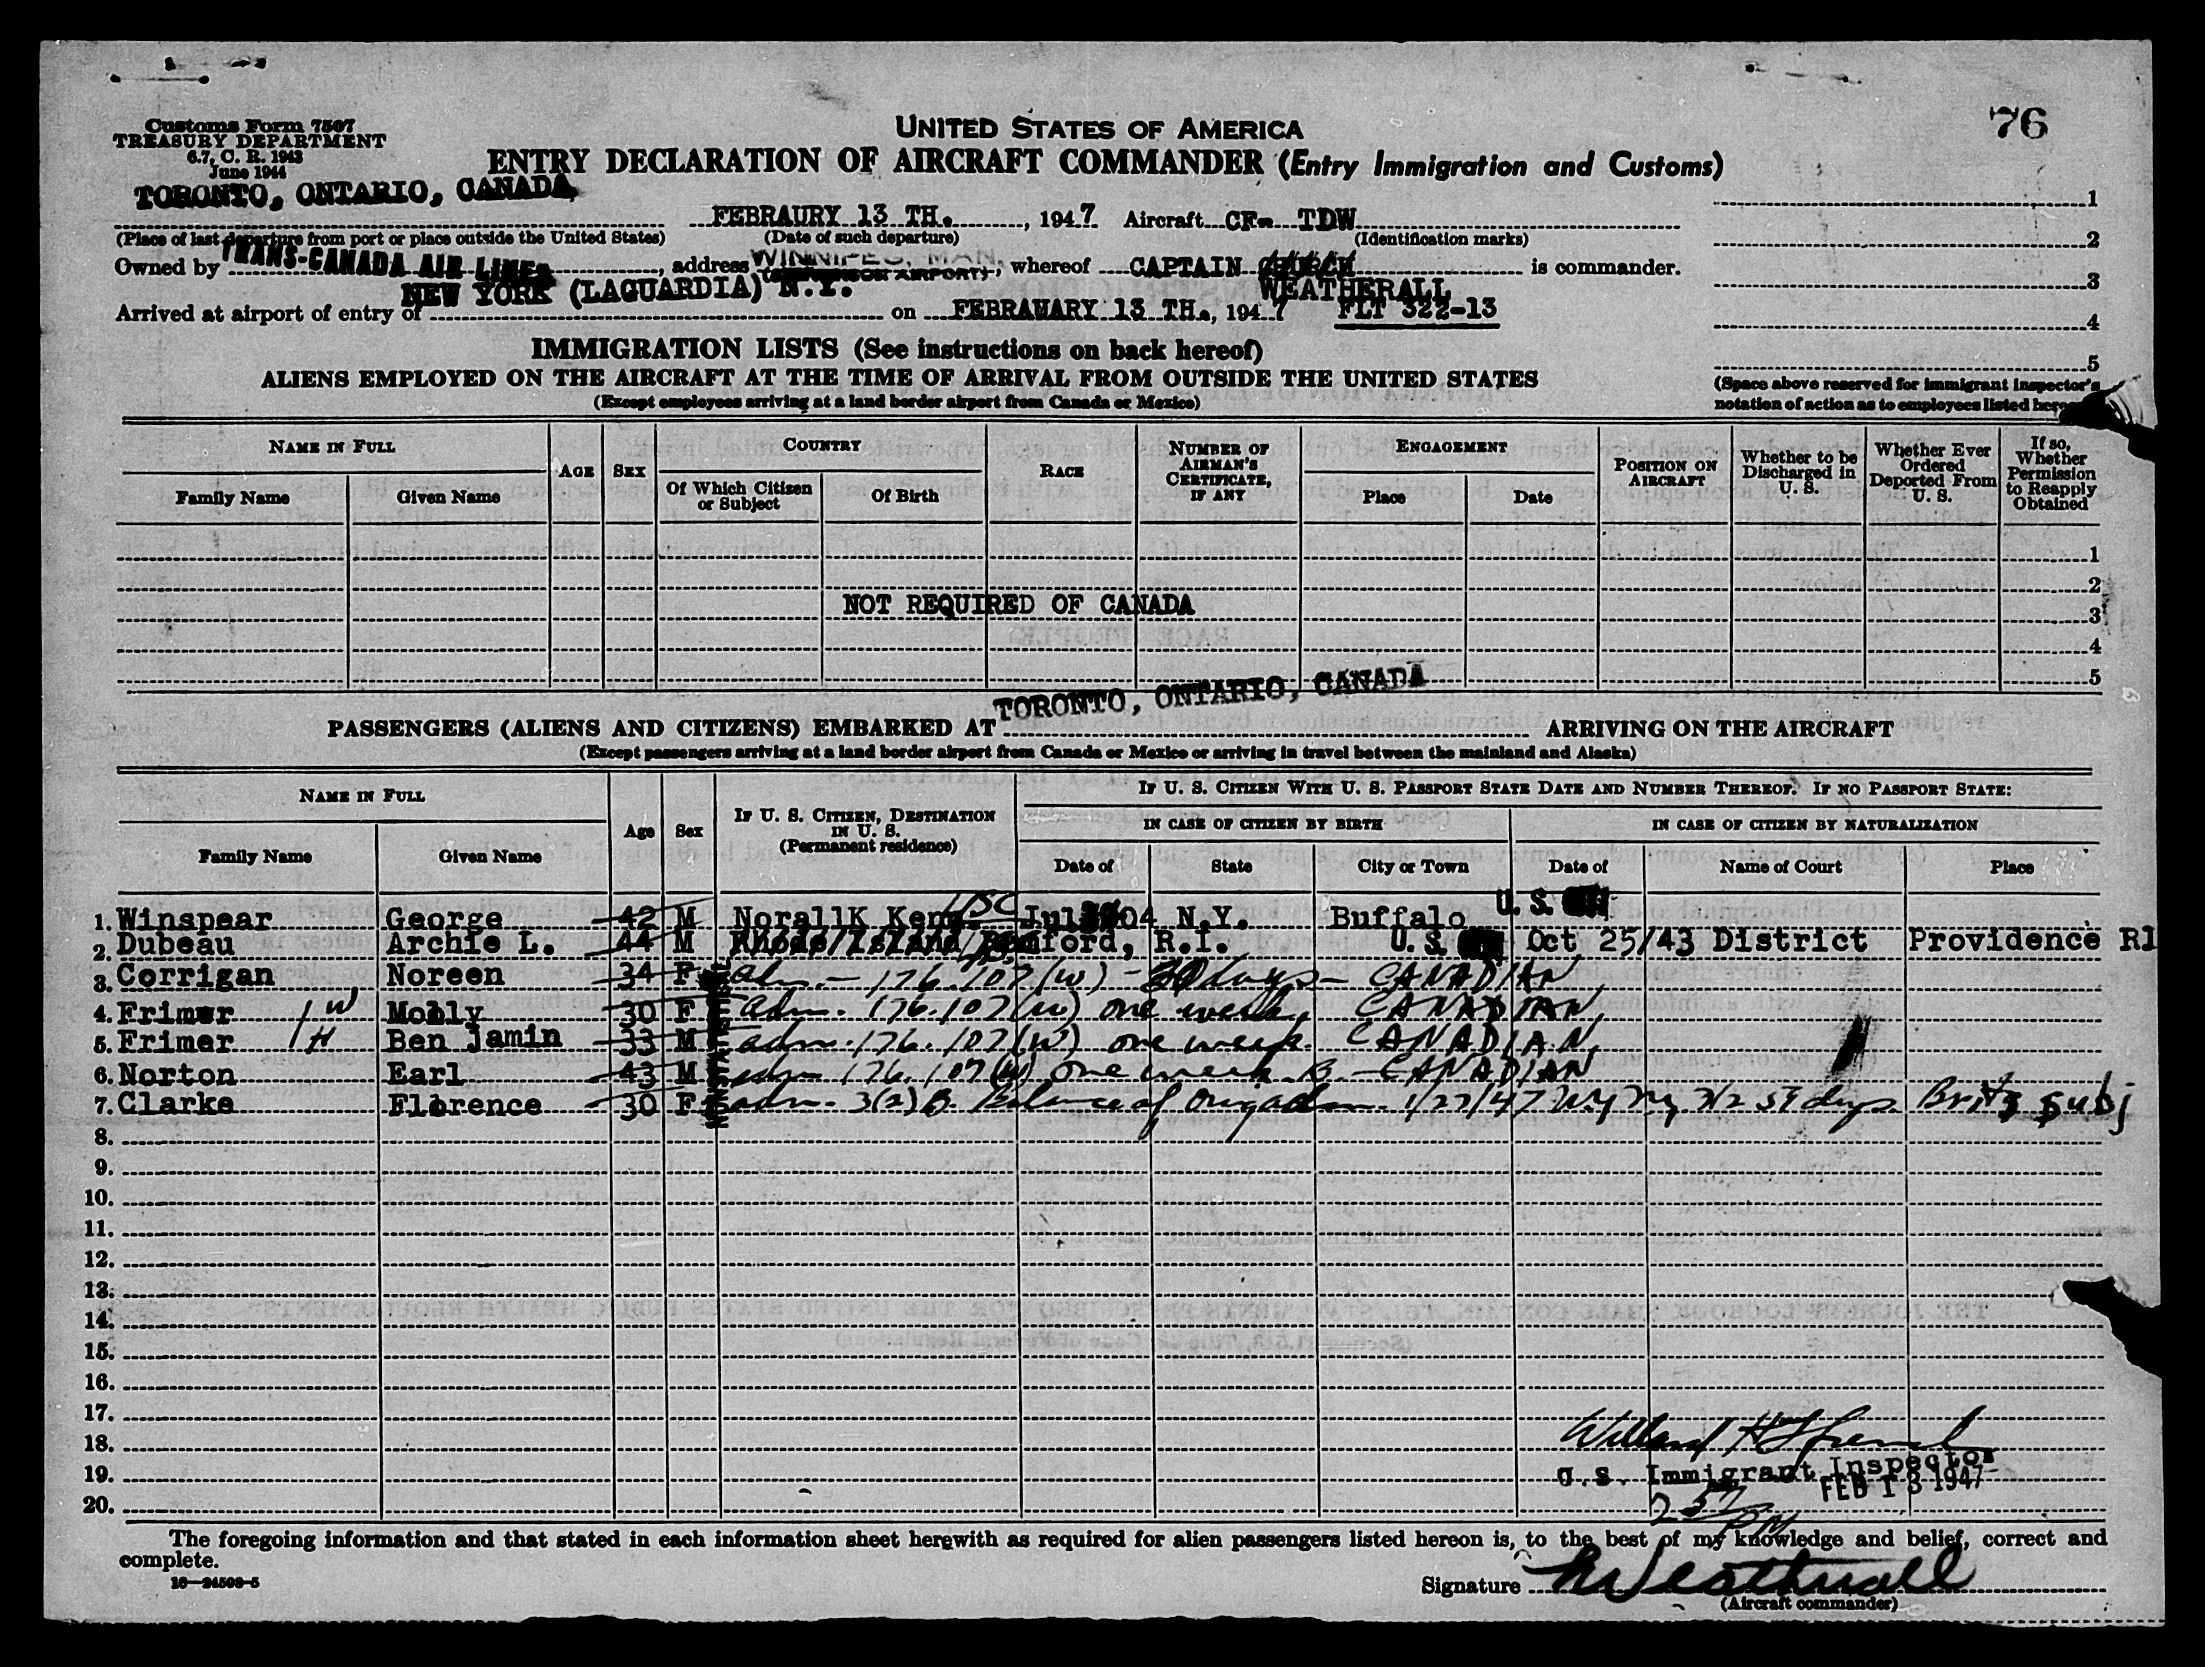 76
Customs Form 7507
TREASURY DEPARTMENT
6.7, C. R. 1943
June 1944
UNITED STATES OF AMERICA
ENTRY DECLARATION OF AIRCRAFT COMMANDER (Entry Immigration and Customs)
TORONTO, ONTARIO, CANADA FEBRAURY 13 TH., 1947 Aircraft CF- TDW
(Place of last departure from port or place outside the United States) (Date of such departure) (Identification marks)
Owned by TRANS-CANADA AIR LINES, address WINNIPEG, MAN. (STEVENSON AIRPORT), whereof CAPTAIN CHURCH is commander.
WEATHERALL
Arrived at airport of entry of NEW YORK (LAGUARDIA) N.Y. on FEBRAUARY 13 TH., 1947 FLT 322-13
1
2
3
4
5
(Space above reserved for immigrant inspector's
notation of action as to employees listed
IMMIGRATION LISTS (See instructions on back hereof)
ALIENS EMPLOYED ON THE AIRCRAFT AT THE TIME OF ARRIVAL FROM OUTSIDE THE UNITED STATES
(Except employees arriving at a land border airport from Canada or Mexico)
NAME IN FULL AGE SEX COUNTRY RACE NUMBER OF AIRMAN'S CERTIFICATE, IF ANY ENGAGEMENT POSITION ON AIRCRAFT Whether to be Discharged in U. S. Whether Ever Ordered Deported From U. S. If so, Whether Permission to Reapply Obtained
Family Name Given Name Of Which Citizen or Subject Of Birth Place Date
1
2
NOT REQUIRED OF CANADA
3
4
5
PASSENGERS (ALIENS AND CITIZENS) EMBARKED AT TORONTO, ONTARIO, CANADA ARRIVING ON THE AIRCRAFT
(Except passengers arriving at a land border airport from Canada or Mexico or arriving in travel between the mainland and Alaska)
NAME IN FULL Age Sex IF U. S. CITIZEN, DESTINATION IN U. S. (Permanent residence) IF U. S. CITIZEN WITH U. S. PASSPORT STATE DATE AND NUMBER THEREOF. IF NO PASSPORT STATE:
IN CASE OF CITIZEN BY BIRTH IN CASE OF CITIZEN BY NATURALIZATION
Family Name Given Name Date of State City or Town Date of Name of Court Place
1. Winspear George 42 M USC 04 N.Y. Buffalo U.S.
2. Dubeau Archie L. 44 M Rhode Island R.I. U.S. Oct 25/43 District Providence RI
3. Corrigan Noreen 34 F adm. - 176.107 (W) - 30 days - CANADIAN
4. Frimer W Molly 30 F adm. 176.107 (W) one week. CANADIAN
5. Frimer H Ben jamin 33 M adm. 176.107 (W) one week. CANADIAN
6. Norton Earl 43 M adm 176.107 (W) one week B. - CANADIAN
7. Clarke Florence 30 F adm. 3(2) B. Balance of Orig adm. 1/27/47 days Brit subj
8.
9.
10.
11.
12.
13.
14.
15.
16.
17.
18.
19. U.S. Immigrant Inspector
FEB 13 1947
20.
The foregoing information and that stated in each information sheet herewith as required for alien passengers listed hereon is, to the best of my knowledge and belief, correct and
complete.
16—24509-5
Signature Weatherall
(Aircraft commander)